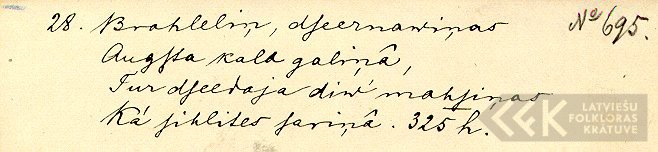 28. Brahleliņ, dseernawiņas № 695.
Augsta kalna galiņâ,
Tur dseedaja diw' mahsiņas
Kâ sihlites sariņâ. 325 h.
LATVIEŠU
FOLKLORAS
KRĀTUVE